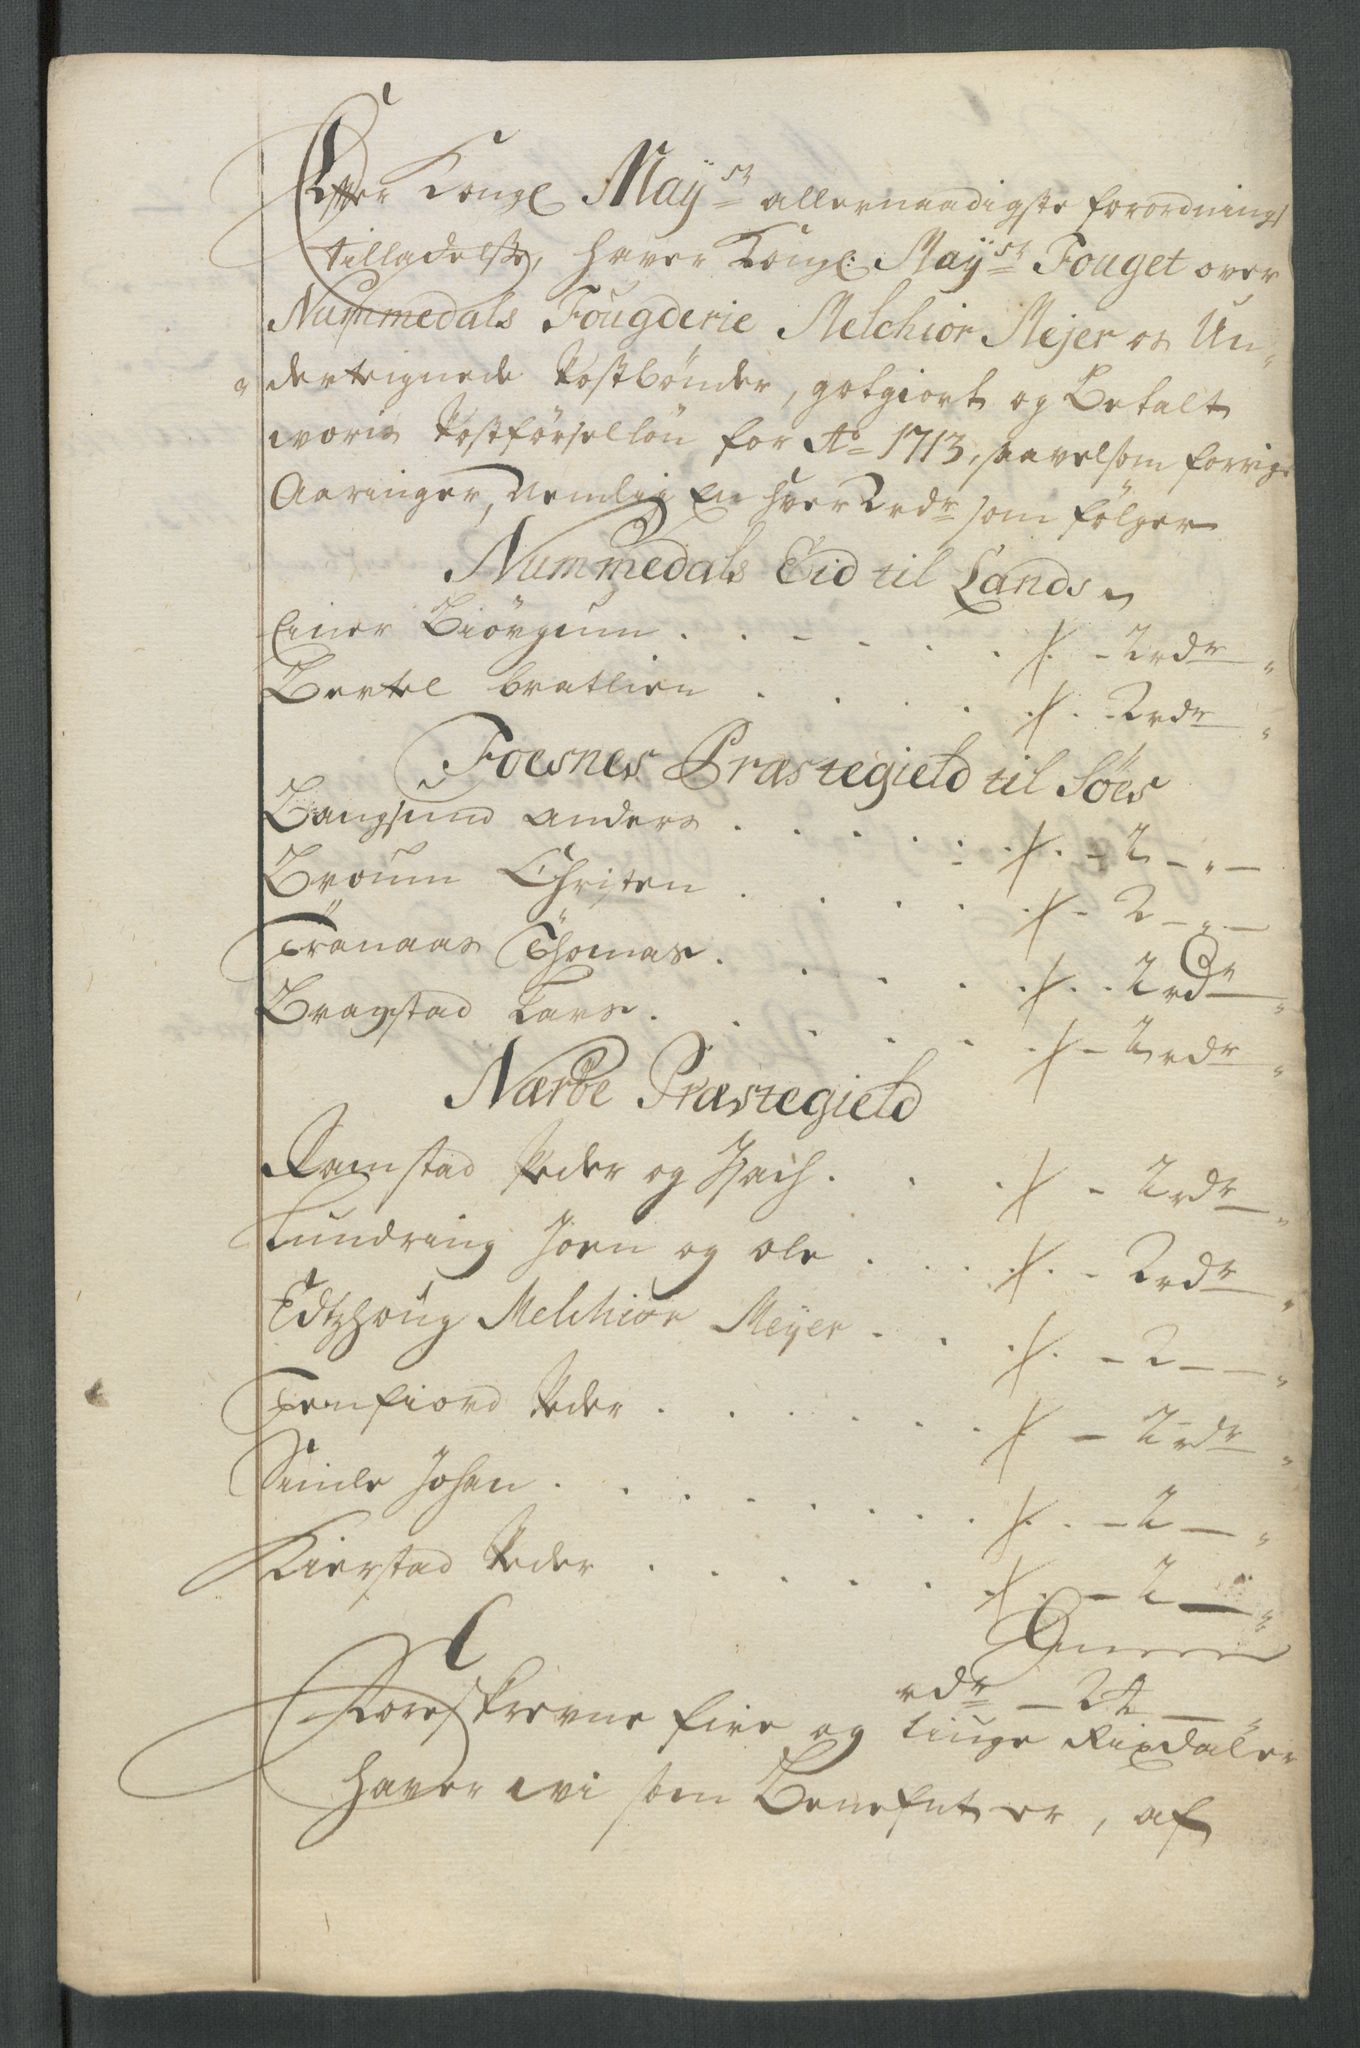 Efter Kongl May^st allernaadigste forordnings
tilladelse, haver Kongl: May^st Fouget over
Nummedals Fougderie Melchior Mejer os Un-
derteignede Postbönder, gotgiort og Betalt
woris Postförsellön for A^o 1713, saavelsom forrige
Aaringer, Nemlig En hver 2 rdr som fölger
Nummedals Eid til Lands
Einer Biörgum . . . . . ⁒ - 2 rdr „
Bertel bratlien . . . . ⁒ - 2 rdr „
Foesnes Præstegield til Söes
Bangsund Anders . . . . ⁒ - 2 - „ -
Broum Christen . . . . ⁒ - 2 - „ -
Tranaas Thomas . . . . ⁒ - 2 rdr „
Bragstad Lars . . . . . ⁒ - 2 rdr „
Nærøe Præstegield
Ramstad Peder og Isach . . . ⁒ - 2 rdr „
Lundring Joen og ole . . . ⁒ - 2 rdr „
Edtzhoug Melchior Meyer . . . ⁒ - 2 - „
Terfiord Peder . . . . . ⁒ - 2 rdr „
Simle Johan . . . . . . ⁒ - 2 - „
Kierstad Peder . . . . . ⁒ - 2 - „
Summa
rdr - 24 - „
Foreskrevne fire og tiuge Rixdaler
haver wi som Benefnt er, af